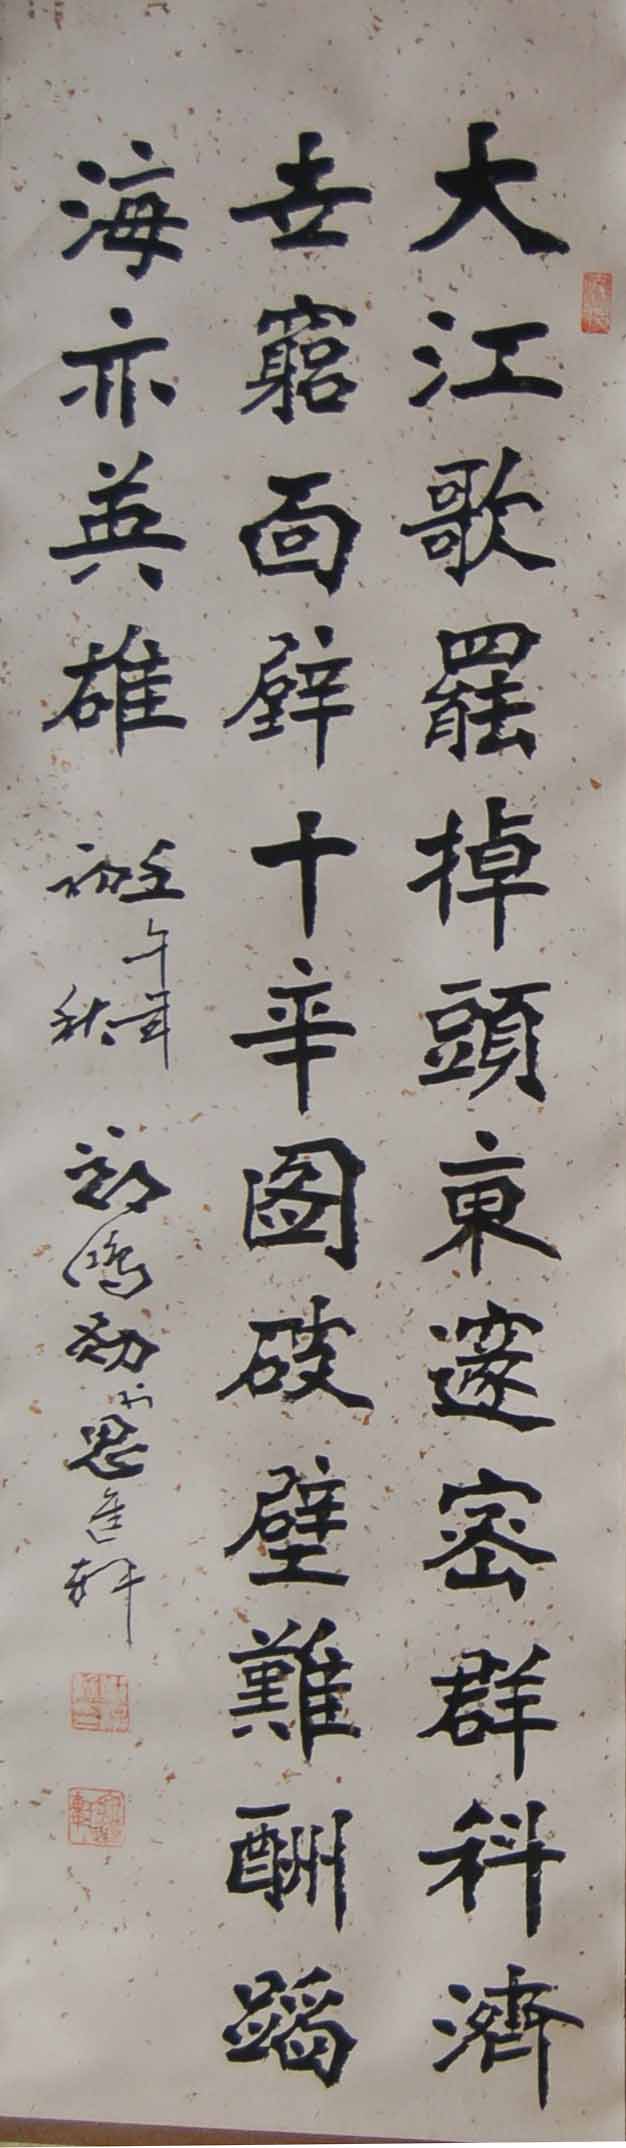 大江歌罷掉頭東邃密群科濟
世窮面壁十年圖破壁難酬蹈
海亦英雄
壬午年
初秋